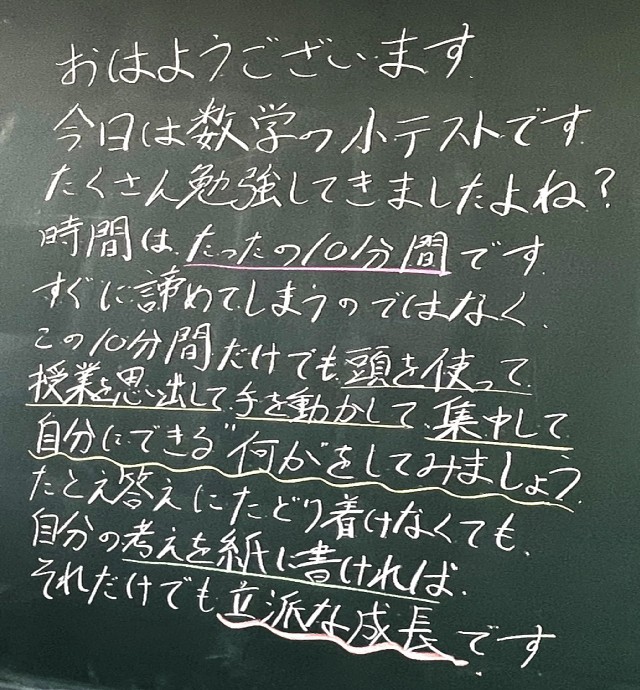 おはようございます
今日は数学の小テストです
たくさん勉強してきましたよね?
時間は、たったの10分間です
すぐに諦めてしまうのではなく、
この10分間だけでも頭を使って
授業を思い出して手を動かして、集中して
自分にできる"何か"をしてみましょう
たとえ答えにたどり着けなくても、
自分の考えを紙に書ければ、
それだけでも立派な成長です